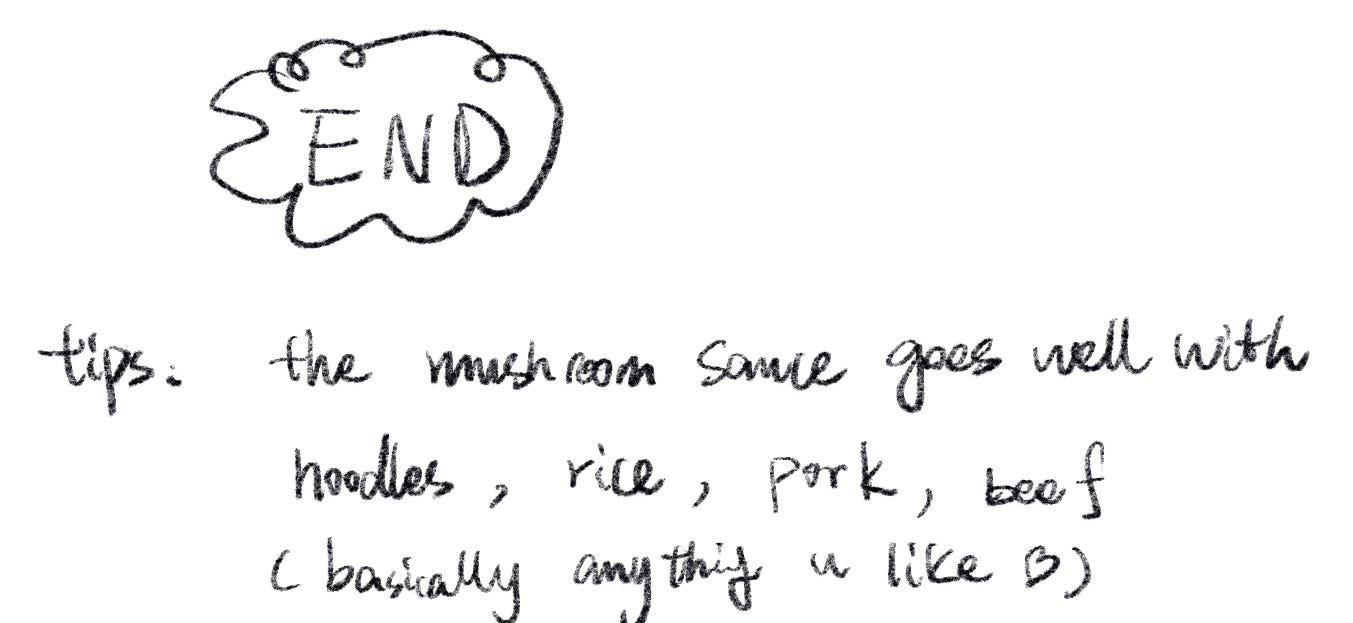 END
tips: the mushroom sauce goes well with
noodles, rice, pork, beef
(basically anythig u like :))